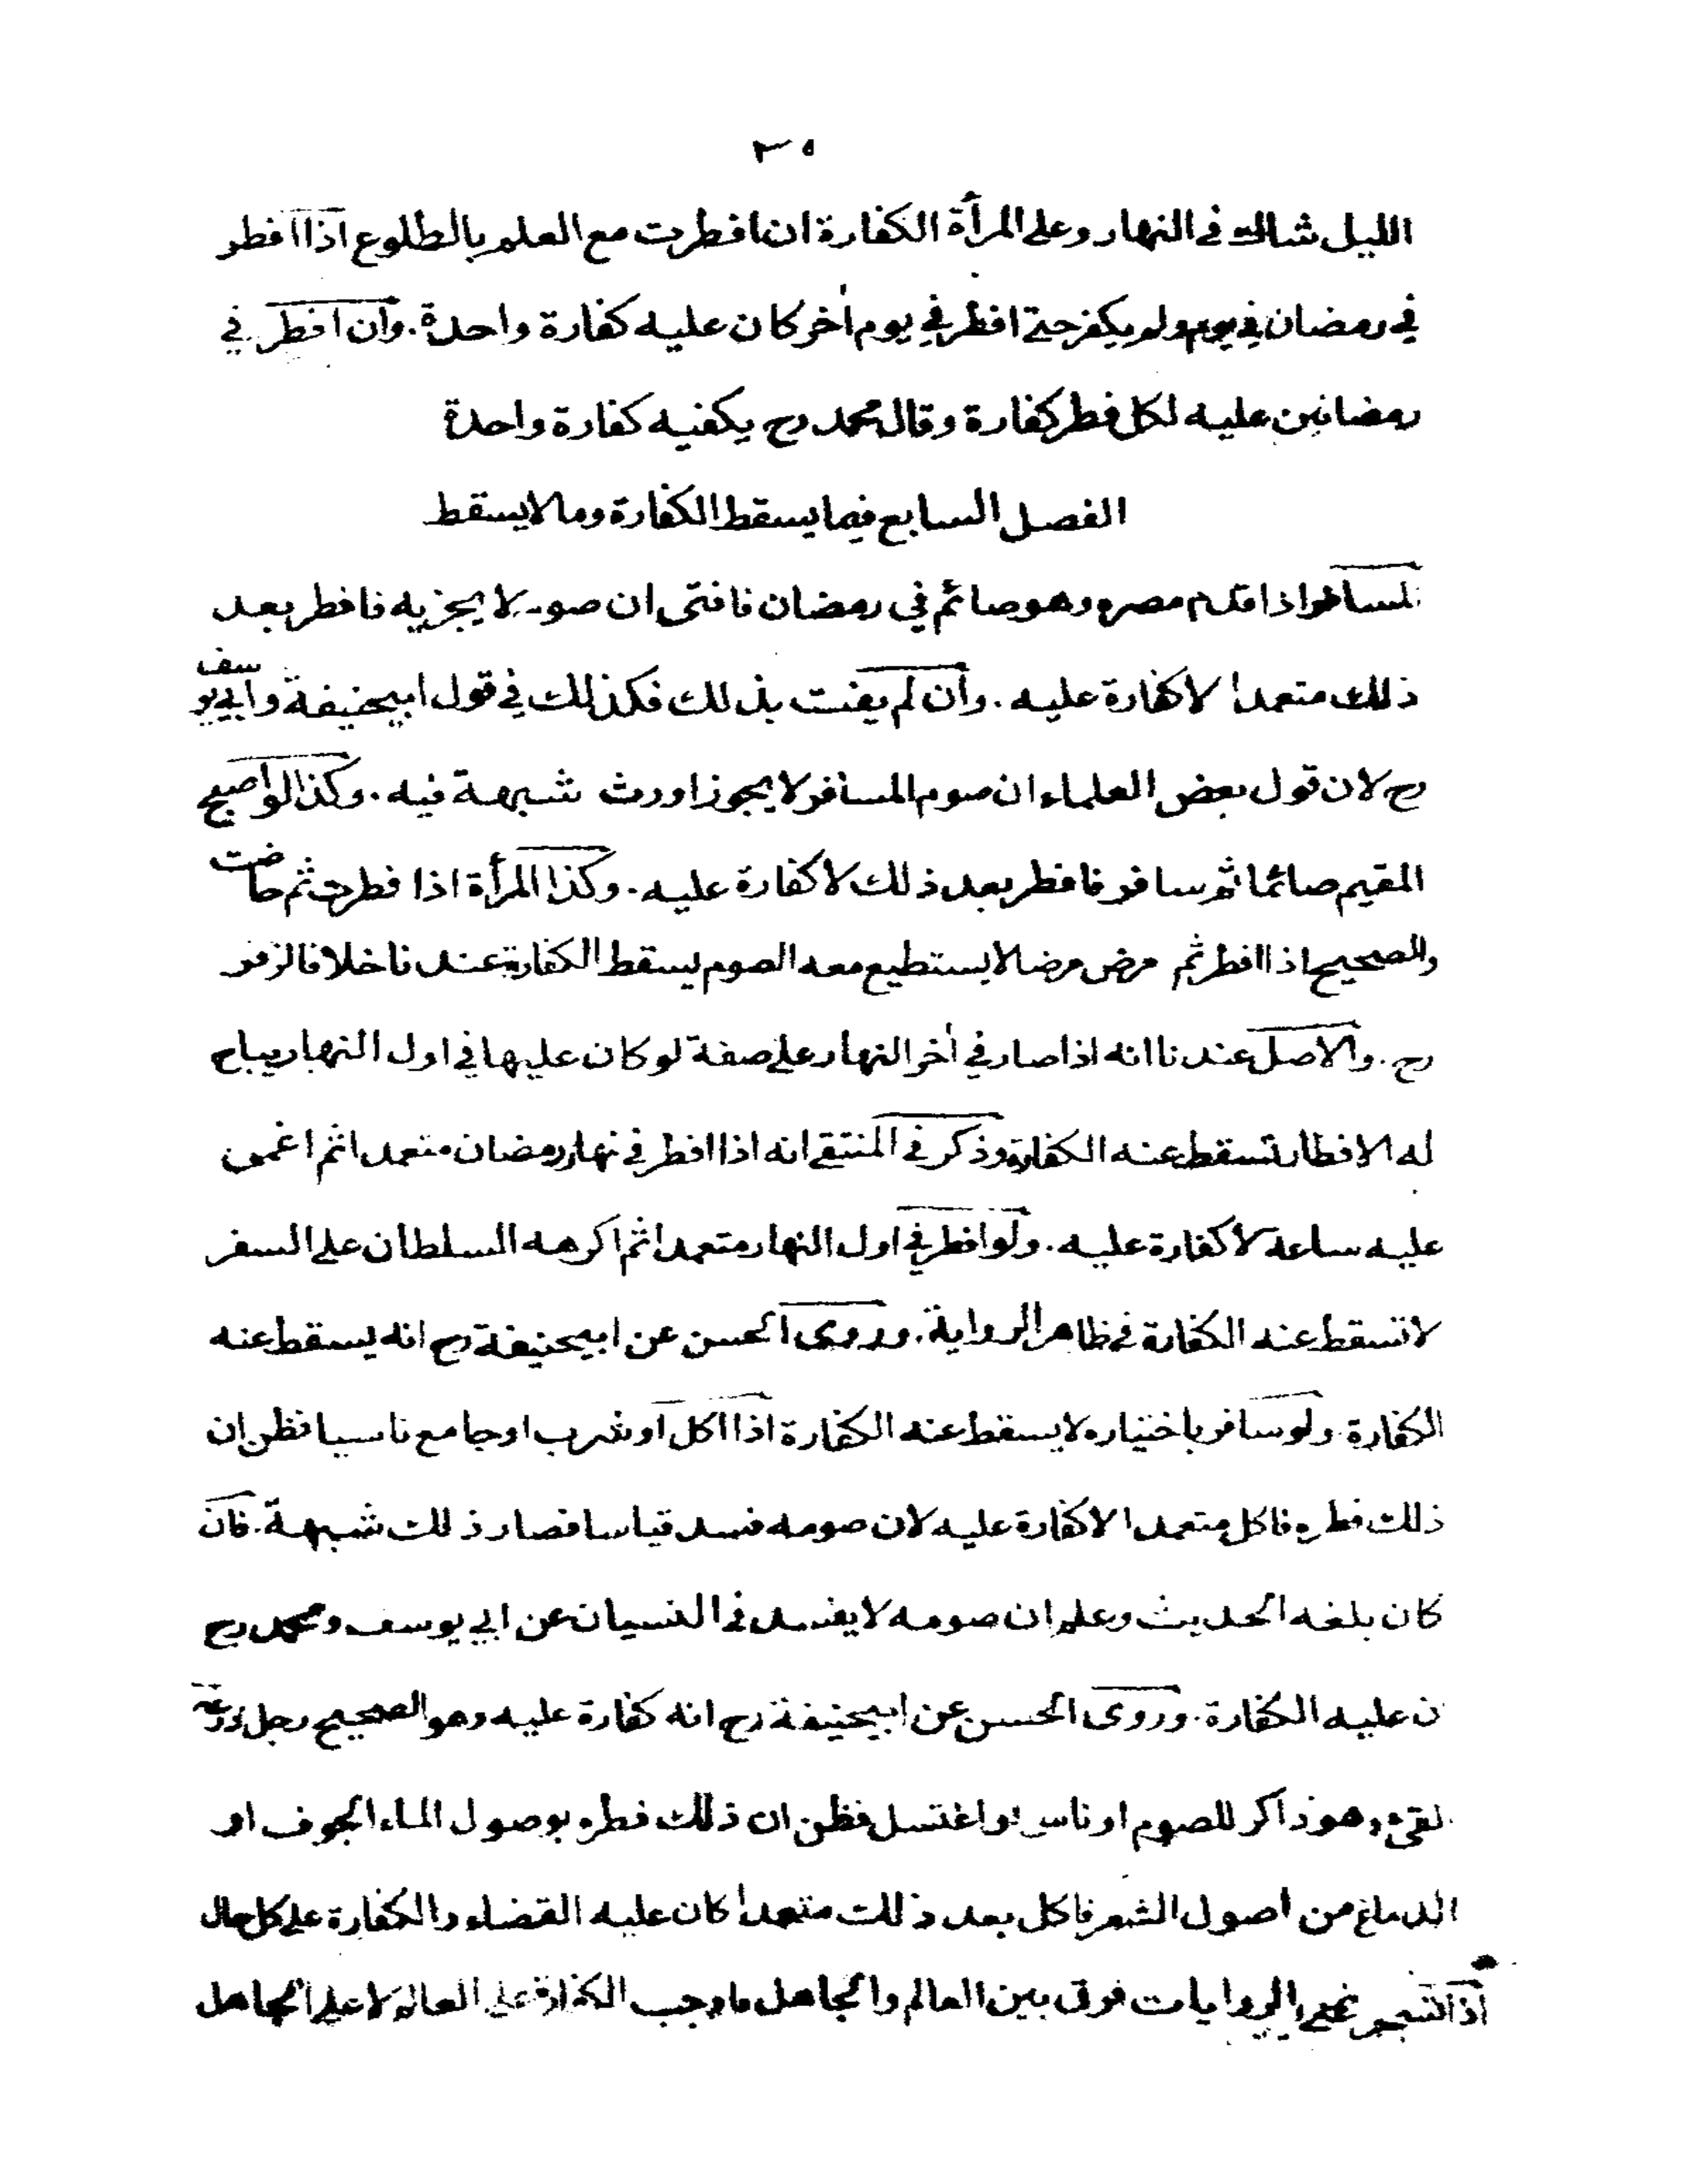 ٢٥
الليل شاك في النهار وعلى المرأة الكفارة ان افطرت مع العلم بالطلوع اذا افطر
في رمضان في يوم ولم يكفر حتى افطر في يوم أخر كان عليه كفارة واحدة. وان افطر في
رمضانين عليه لكل فطر كفارة وقال محمد رح يكفيه كفارة واحدة
الفصل السابع فيما يسقط الكفارة وما لا يسقط
لمسافر اذا قدم مصره وهو صائم في رمضان فافتى ان صومه لا يجزيه فافطر بعد
ذلك متعمدا لا كفارة عليه. وان لم يفت بذلك فكذلك في قول ابيحنيفة وابي يوسف
رح لان قول بعض العلماء ان صوم المسافر لا يجوز اورث شبهة فيه. وكذا لو اصبح
المقيم صائما ثم سافر فافطر بعد ذلك لا كفارة عليه. وكذا المرأة اذا فطرت ثم حاضت
والصحيح اذا افطر ثم مرض مرضا لا يستطيع معه الصوم يسقط الكفارة عندنا خلافا لزفر
رح. والاصل عندنا انه اذا صار في أخر النهار على صفة لو كان عليها في اول النهار يباح
له الافطار تسقط عنه الكفارة وذكر في المنتقى انه اذا افطر في نهار رمضان متعمدا ثم اغمى
عليه ساعة لا كفارة عليه. ولو افطر في اول النهار متعمدا ثم اكرهه السلطان على السفر
لا تسقط عنه الكفارة في ظاهر الرواية. وروى الحسن عن ابيحنيفة رح انه يسقط عنه
الكفارة ولو سافر باختياره لا يسقط عنه الكفارة اذا اكل او شرب او جامع ناسيا فظن ان
ذلك فطره فاكل متعمدا لا كفارة عليه لان صومه فسد قياسا فصار ذلك شبهة. فان
كان بلغه الحديث وعلم ان صومه لا يفسد في النسيان عن ابي يوسف ومحمد رح
ن عليه الكفارة. وروى الحسن عن ابيحنيفة رح انه كفارة عليه وهو الصحيح رجل ذرعه
لقئ وهو ذاكر للصوم او ناس او اغتسل فظن ان ذلك فطره بوصول الماء الجوف او
الدماغ من اصول الشعر فاكل بعد ذلك متعمدا كان عليه القضاء والكفارة على كل حال
اذا الروايات فرق بين العالم والجاهل ما وجب الكفارة على العالم لا على الجاهل